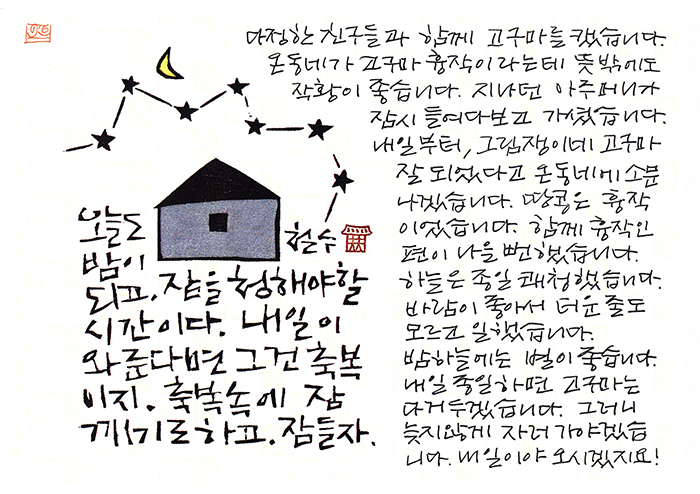 다정한 친구들과 함께 고구마를 캤습니다.
온동네가 고구마 흉작이라는데 뜻밖에도
작황이 좋습니다. 지나던 아주머니가
잠시 들여다보고 가셨습니다.
내일부터, 그림쟁이네 고구마
잘 되었다고 온동네에 소문
나겠습니다. 땅콩은 흉작
이었습니다. 함께 흉작인
편이 나을 뻔했습니다.
하늘은 종일 쾌청했습니다.
바람이 좋아서 더운 줄도
모르고 일했습니다.
밤하늘에는 별이 좋습니다.
내일 종일하면 고구마는
다거두겠습니다. 그러니
늦지않게 자러 가야겠습
니다. 내일이야 오시겠지요!
오늘도
밤이
되고. 잠을 청해야할
시간이다. 내일이
와준다면 그건 축복
이지. 축복속에 잠
깨기로하고. 잠들자.
철수